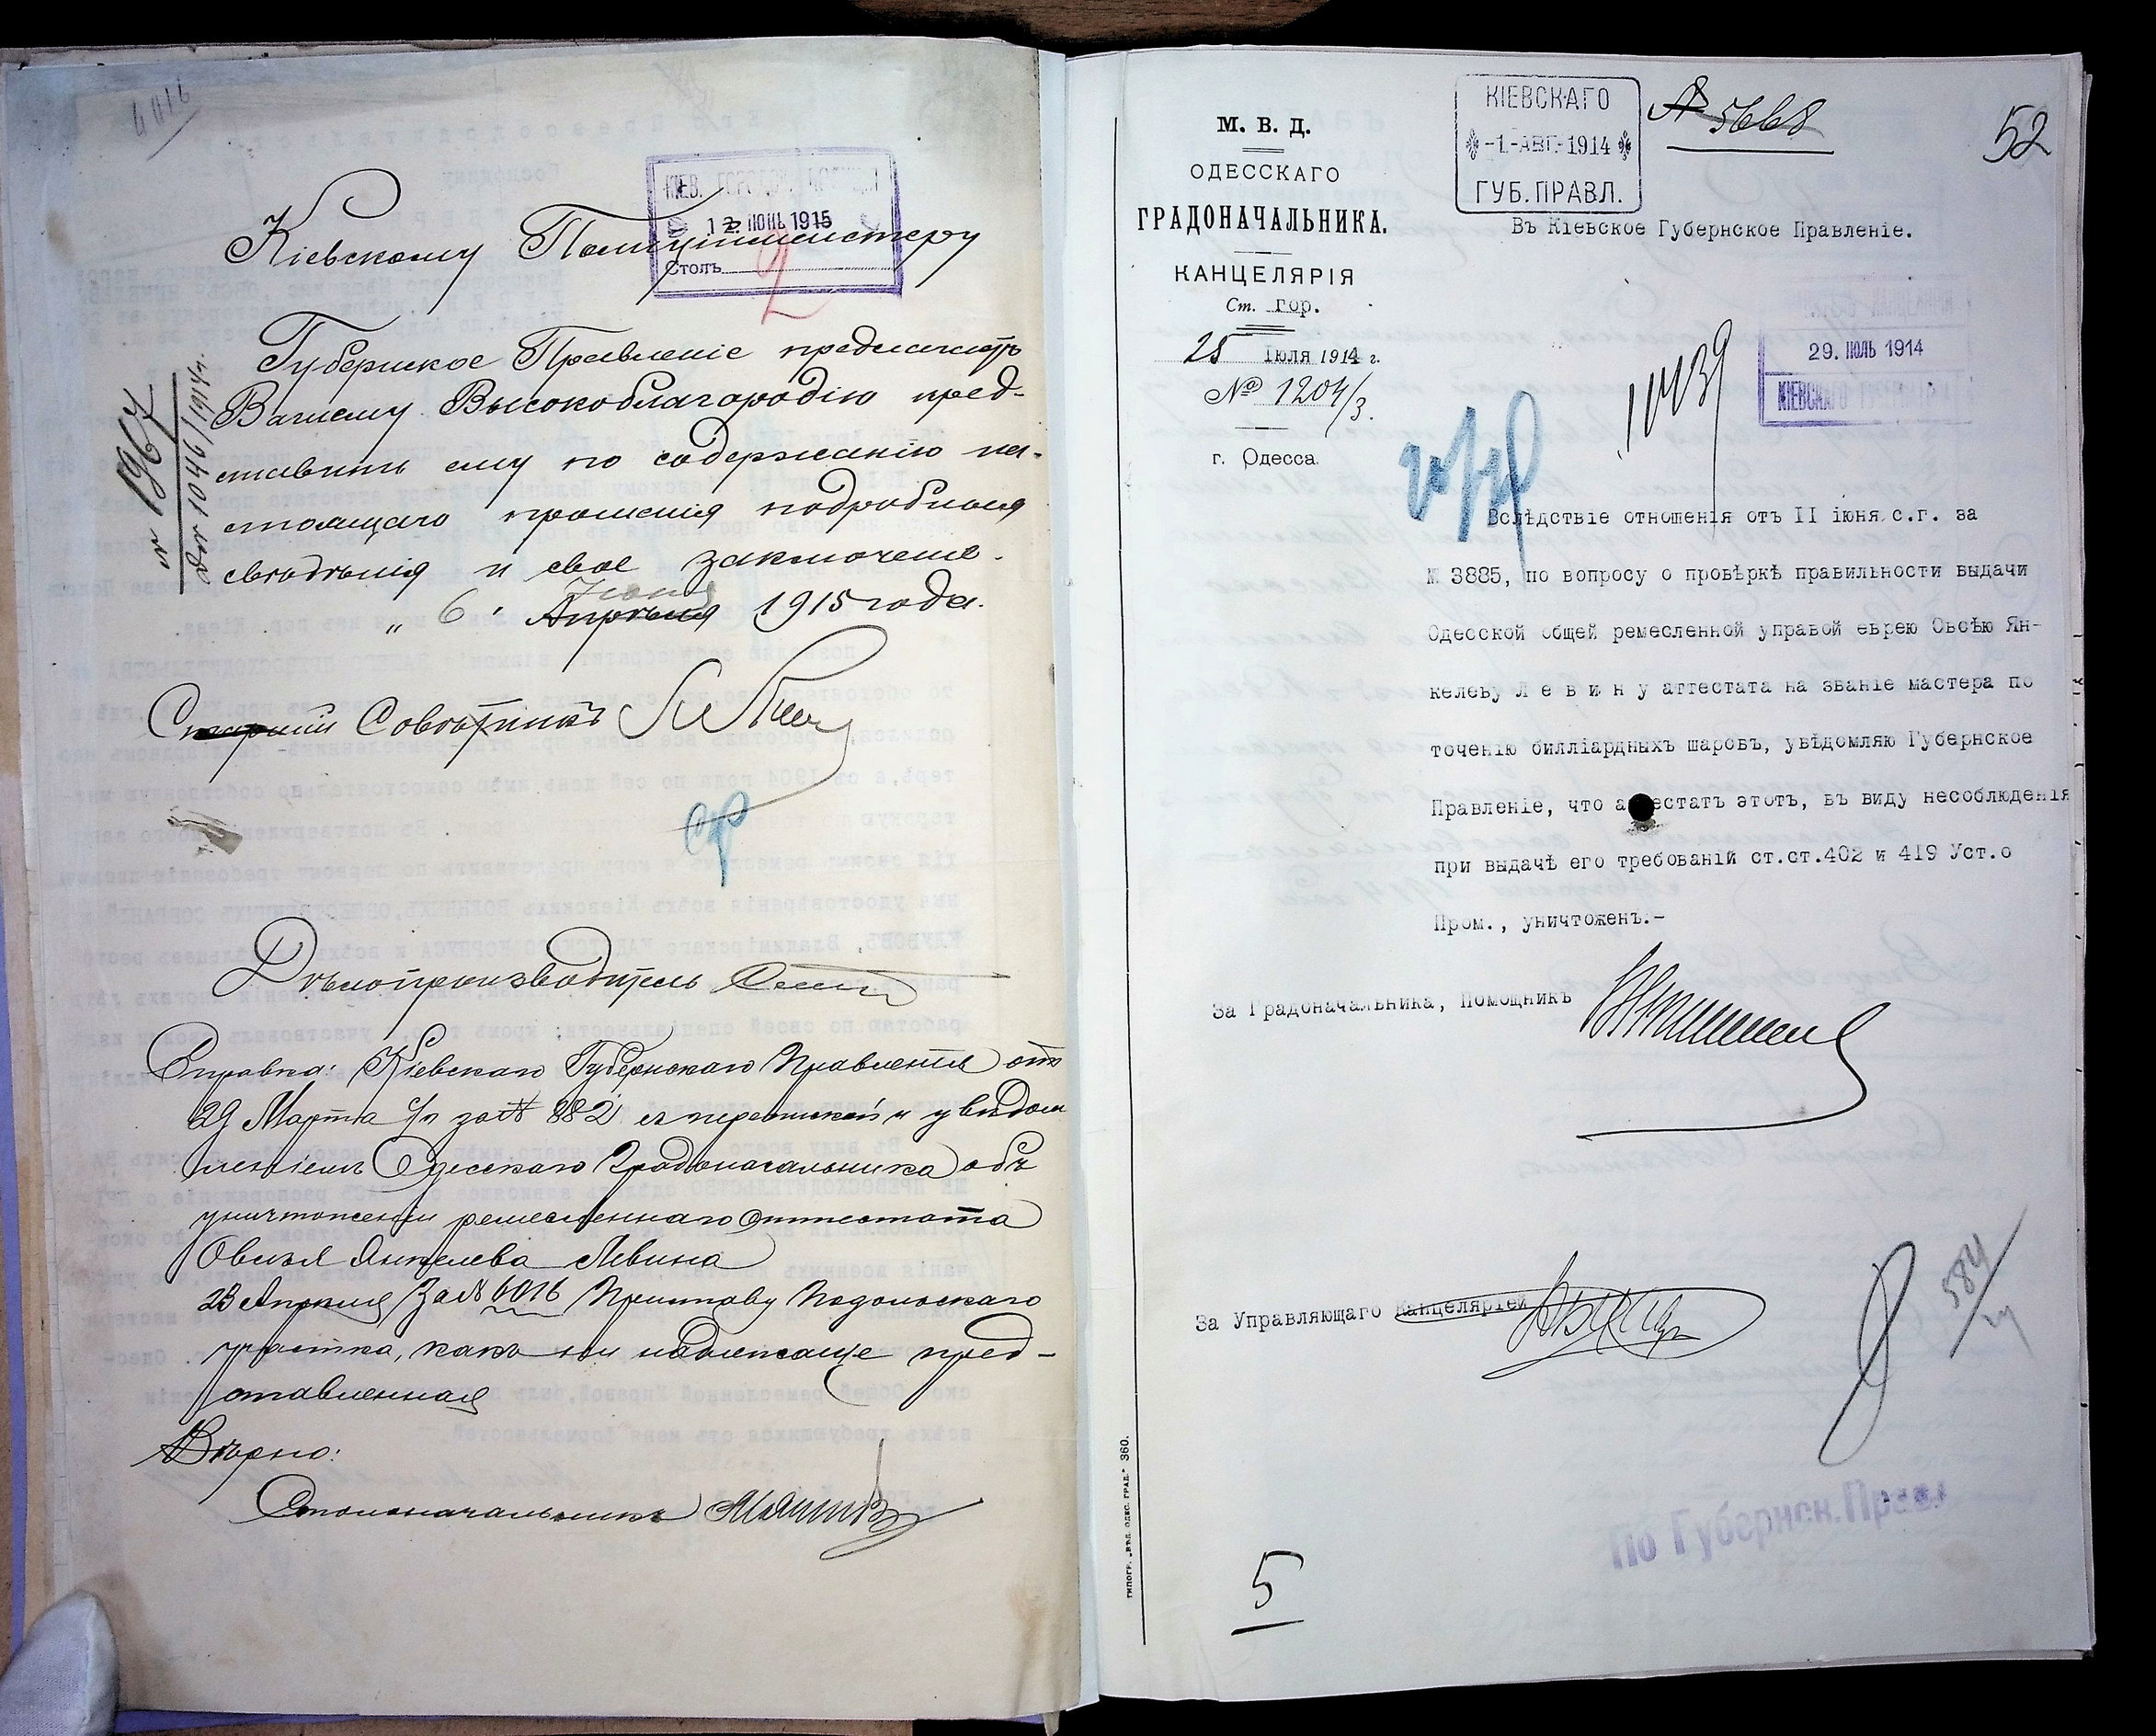 6016
КІЕВ. ГОРОДСК. ПОЛИЦІИ
12 ІЮНЬ 1915
Столъ
2
Кіевскому Полицмейстеру
№ 1967
Дѣл 1046/1914 г.
Губернское Правленіе предлагаетъ
Вашему Высокоблагородію пред-
ставить ему по содержанію на-
стоящаго прошенія подробныя
свѣдѣнія и свое заключеніе.
„ 6 " Апрѣля Іюня 1915 года.
Старшій Совѣтникъ
Дѣлопроизводитель
Справка: Кіевскаго Губернскаго Правленія отъ
29 Марта с/г за № 882 съ перепиской и увѣдом
леніемъ Одесскаго Градоначальника объ
уничтоженіи ремесленнаго аттестата
Овсѣя Янкелева Левина
23 Апрѣля за № 6016 Приставу Подольскаго
участка, какъ не надлежаще пред-
ставленная
Вѣрно:
Столоначальникъ
М. В. Д.
ОДЕССКАГО
ГРАДОНАЧАЛЬНИКА.
КАНЦЕЛЯРІЯ
Ст. Гор.
25 Іюля 1914 г.
№ 1204/3.
г. Одесса.
КІЕВСКАГО
-1-АВГ-1914
ГУБ. ПРАВЛ.
№ 5668
52
Въ Кіевское Губернское Правленіе.
29. ІЮЛЬ 1914
КІЕВСКАГО
Вслѣдствіе отношенія отъ II іюня с.г. за
№ 3885, по вопросу о провѣркѣ правильности выдачи
Одесской общей ремесленной управой еврею Овсѣю Ян-
келеву Л е в и н у аттестата на званіе мастера по
точенію билліардныхъ шаровъ, увѣдомляю Губернское
Правленіе, что аттестатъ этотъ, въ виду несоблюденія
при выдачѣ его требованій ст.ст.402 и 419 Уст.о
Пром., уничтоженъ.-
За Градоначальника, Помощникъ
За Управляющаго Канцеляріей
584
По Губернск. Правл.
5
ТИПОГР. „ВѢД. ОДЕС. ГРАД." 360.